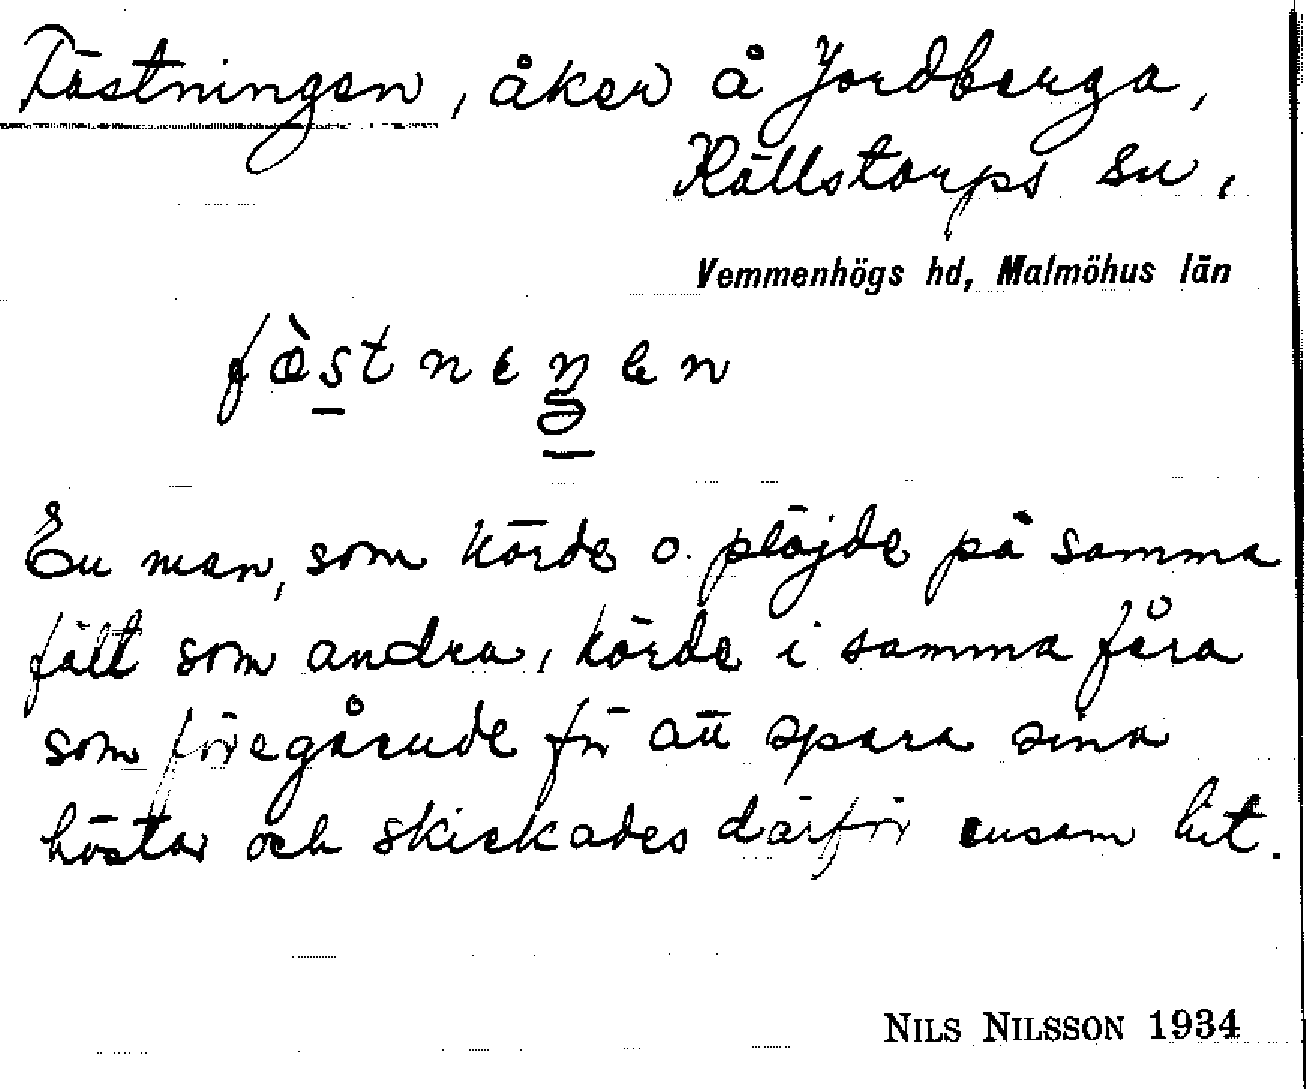 Fästningen, åker å Jordberga,
Källstorps sn,
Vemmenhögs hd, Malmöhus län
En man, som körde o. plöjde på samma
fält som andra, körde i samma fåra
som föregående för att spara sina
hästar och skickades därför ensam hit.
NILS NILSSON 1934